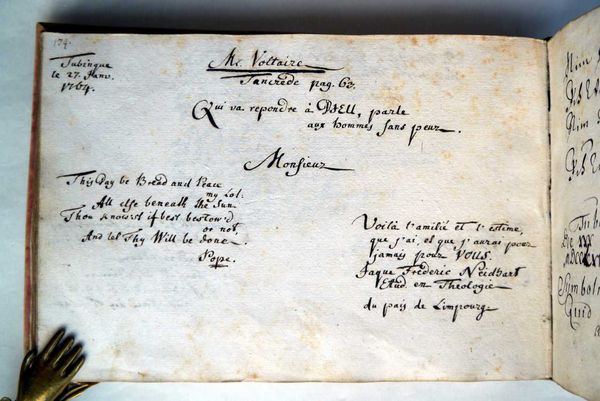 174.
Tubingue
le 27. Janv.
1764.
Mr. Voltaire
Tancrède pag. 63.
Qui va repondre à DIEU, parle
aux hommes sans peur.
Monsieur
This Day be Bread and Peace
my Lot:
All else beneath the Sun
Thou know'st if best bestow'd
or not,
And let Thy Will be done.
Pope.
Voilà l'amitié et l'estime,
que j'ai, et que j'aurai pour
jamais pour VOUS.
Jaque Frederic Neidhart
Etud en Theologie
du païs de Limpourg